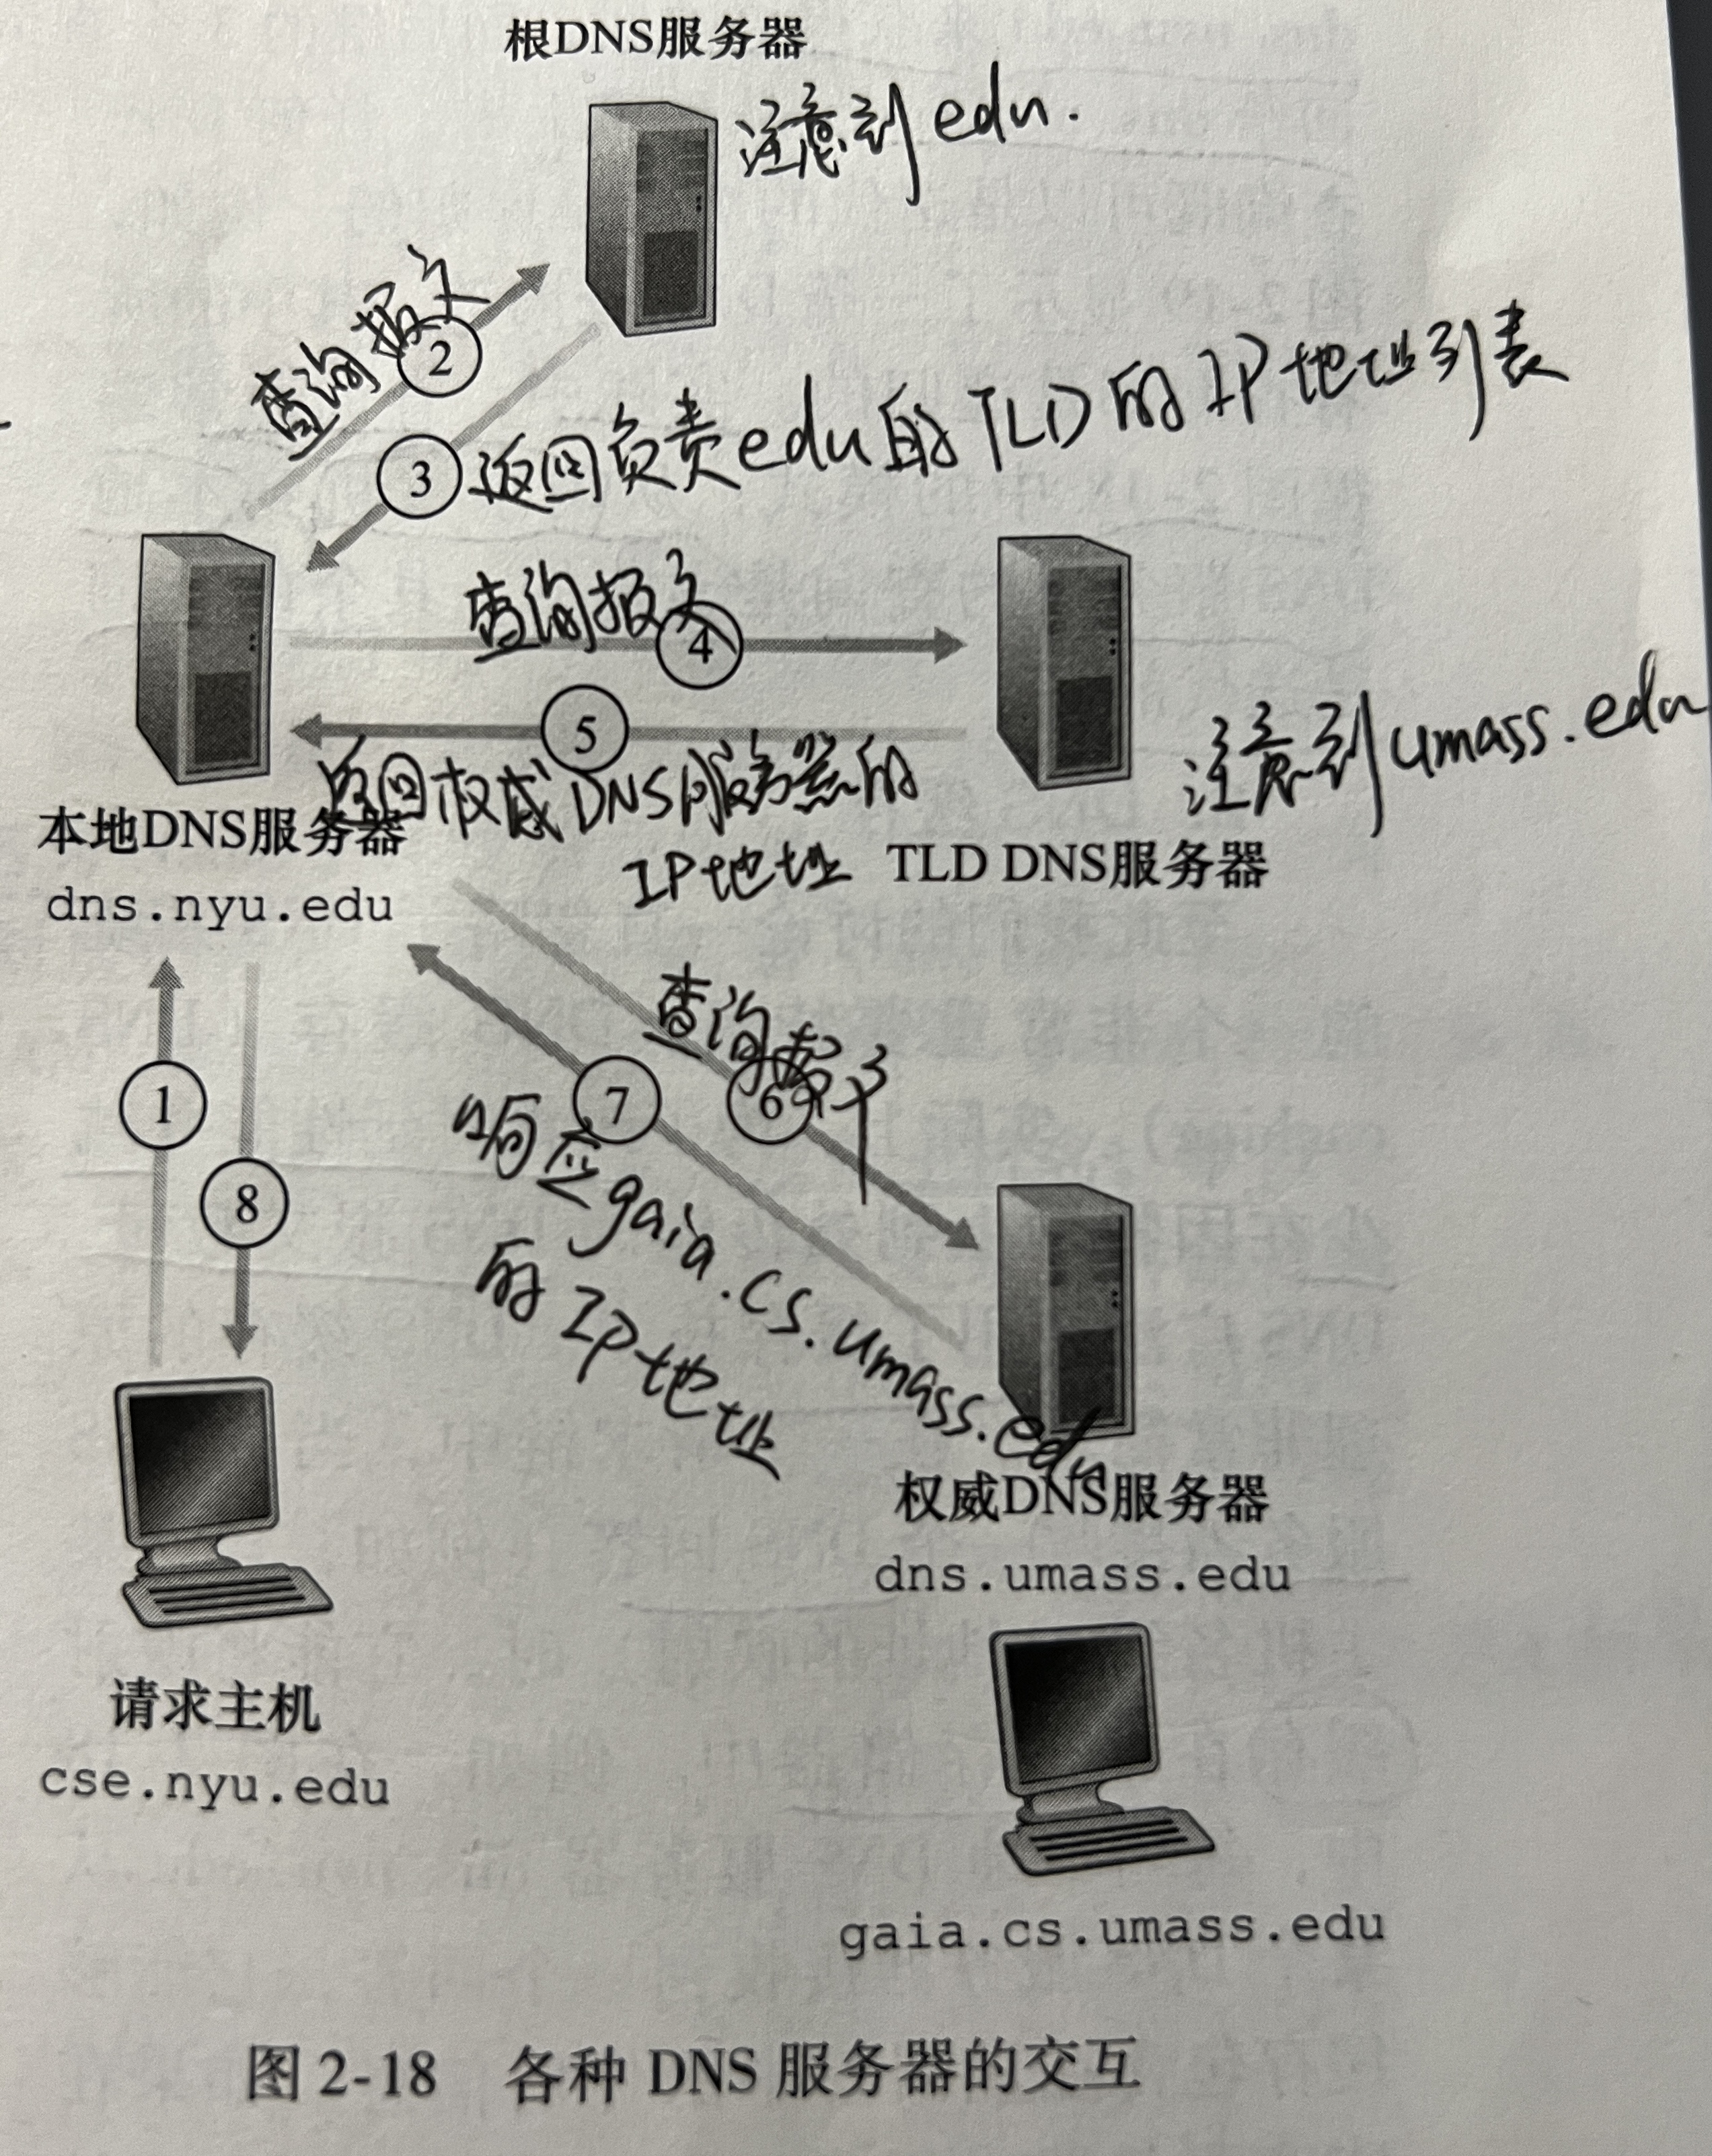 根DNS服务器
注意到edu.
查询报文
2
3
返回负责edu的TLD的IP地址列表
查询报文
4
5
返回权威DNS服务器的
IP地址
注意到umass.edu
本地DNS服务器
dns.nyu.edu
TLD DNS服务器
查询报文
6
7
响应gaia.cs.umass.edu
的IP地址
1
8
权威DNS服务器
dns.umass.edu
请求主机
cse.nyu.edu
gaia.cs.umass.edu
图 2-18 各种 DNS 服务器的交互